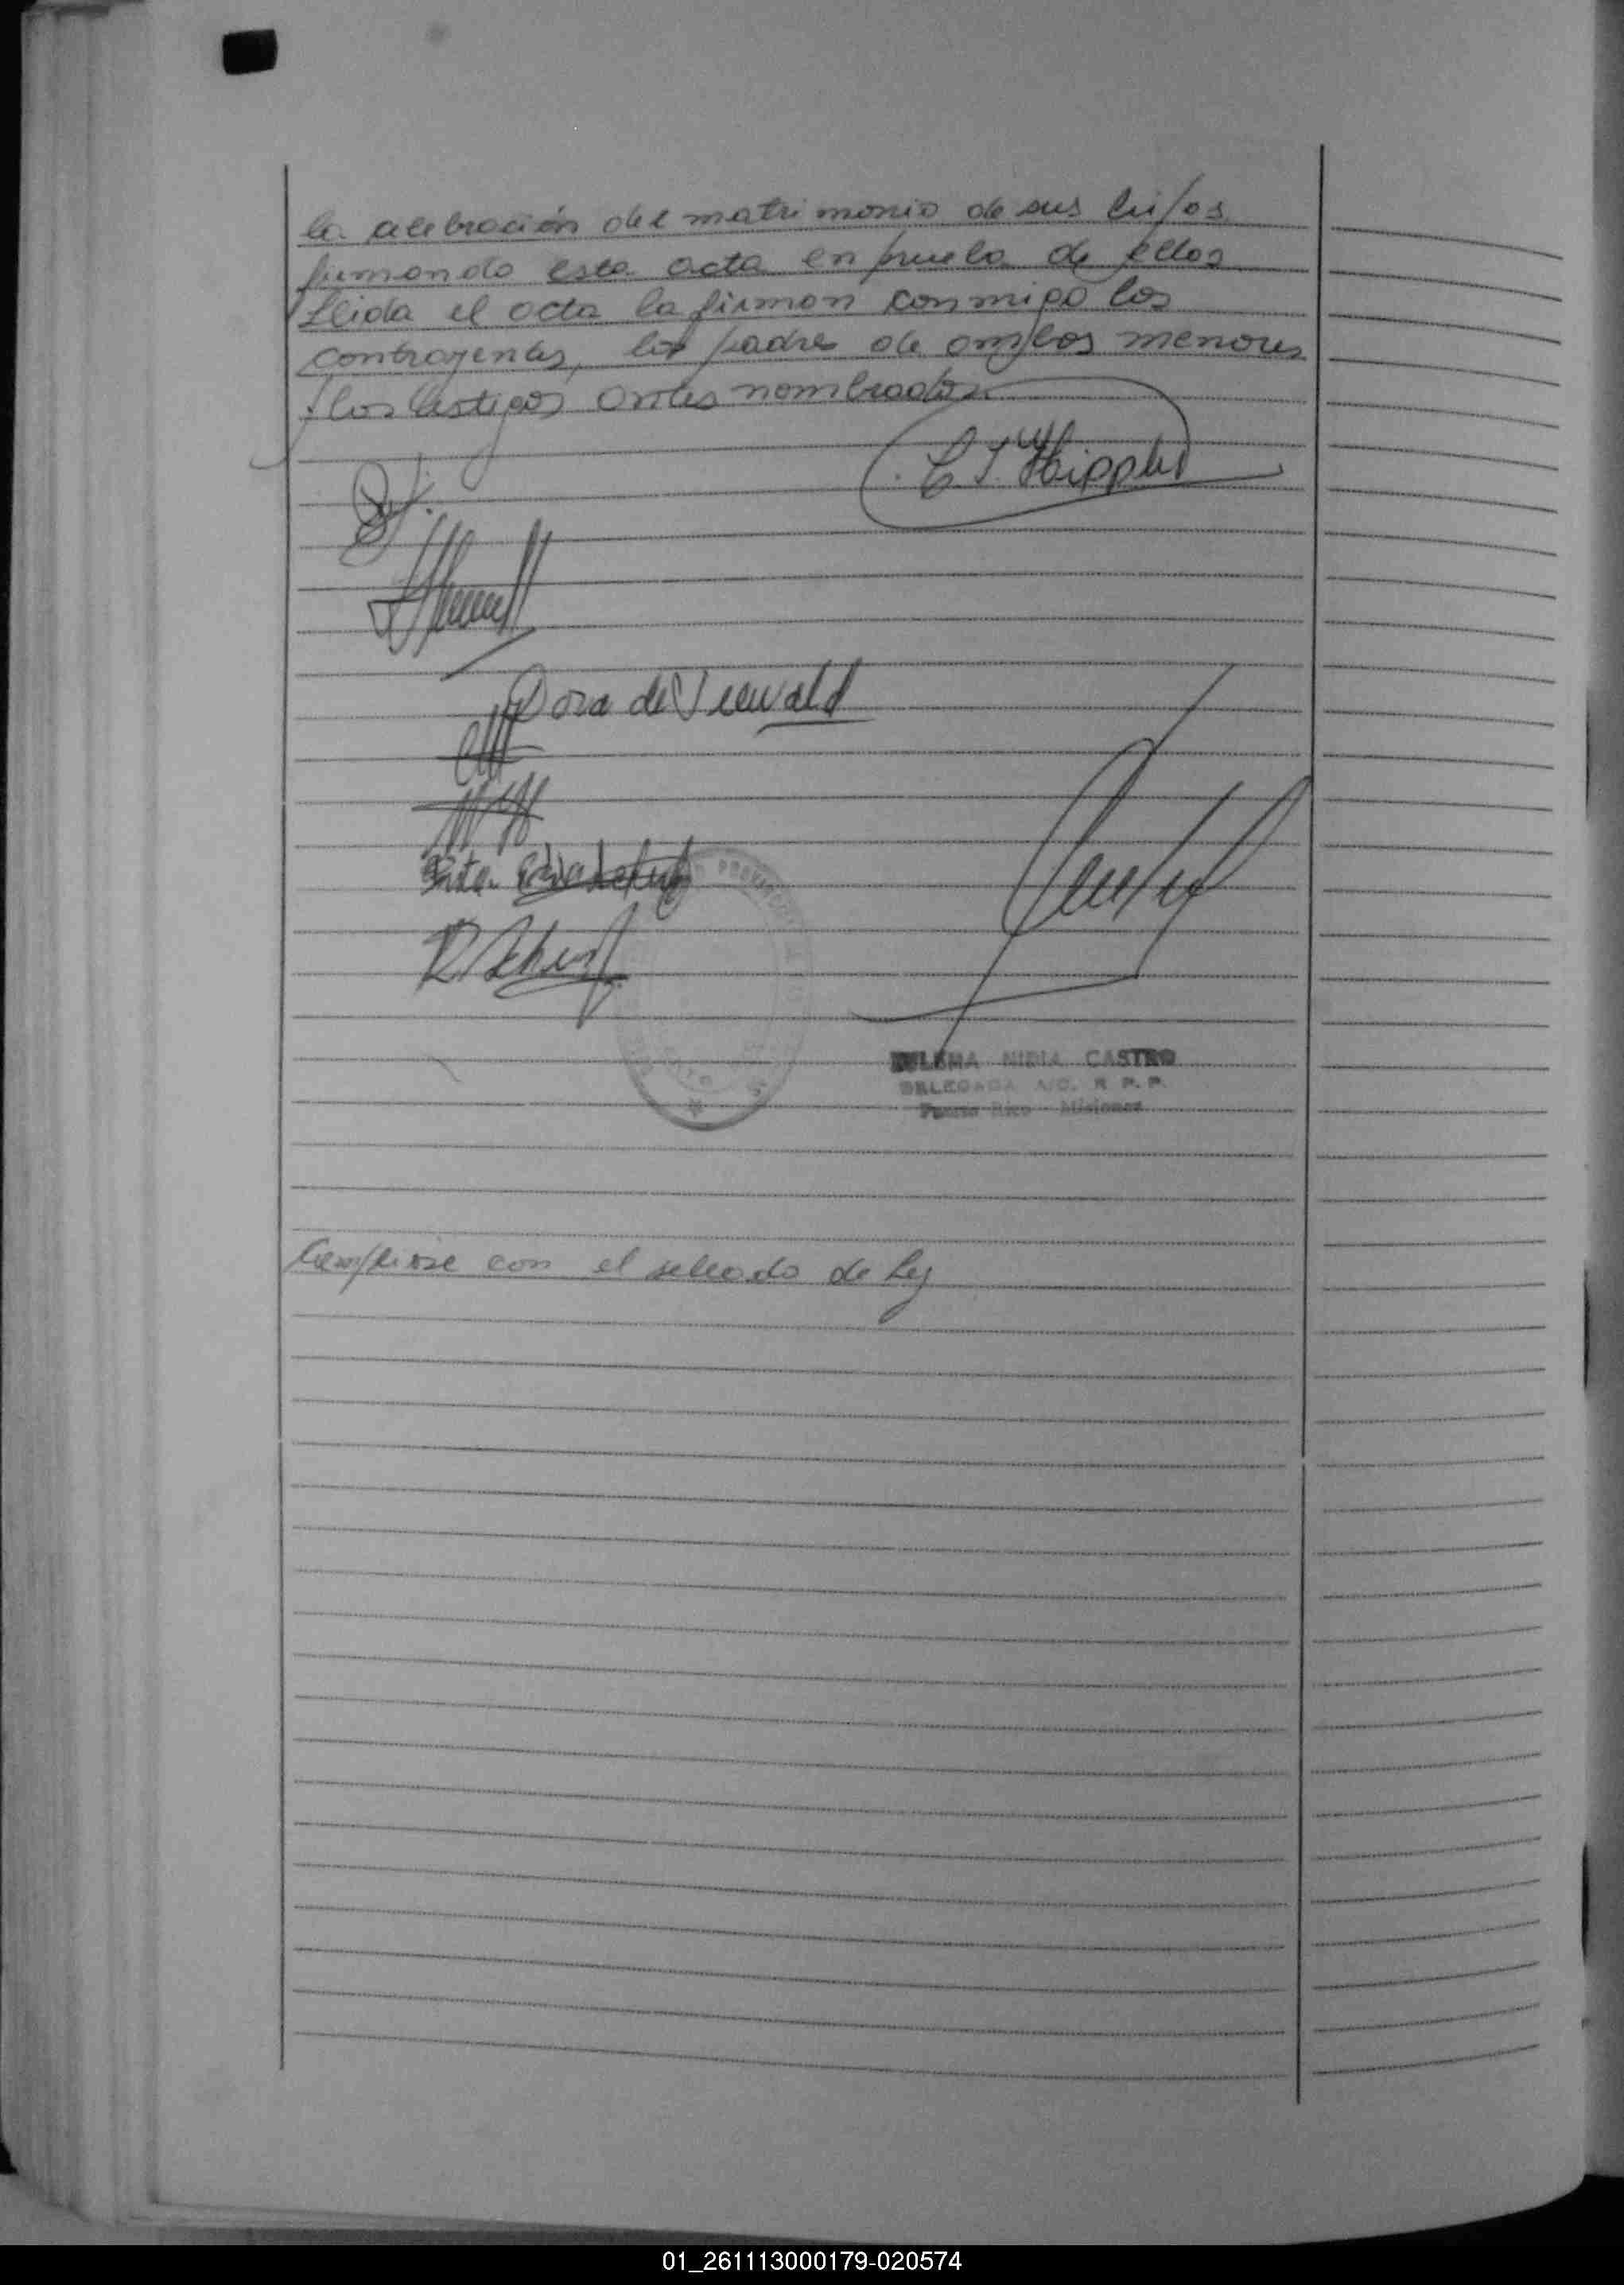 la celebración del matrimonio de sus hijos
firmando esta acta en prueba de ellos
Lleida el acta la firman conmigo los
contrayentes, los padre de ambos menores
y los testigos antes nombrados.
Dora de Seewald
R. Scherf
NIDIA CASTRO
DELEGADA A/C. R P. P.
Puerto Rico - Misiones
Cumpliose con el sellado de Ley
01_261113000179-020574